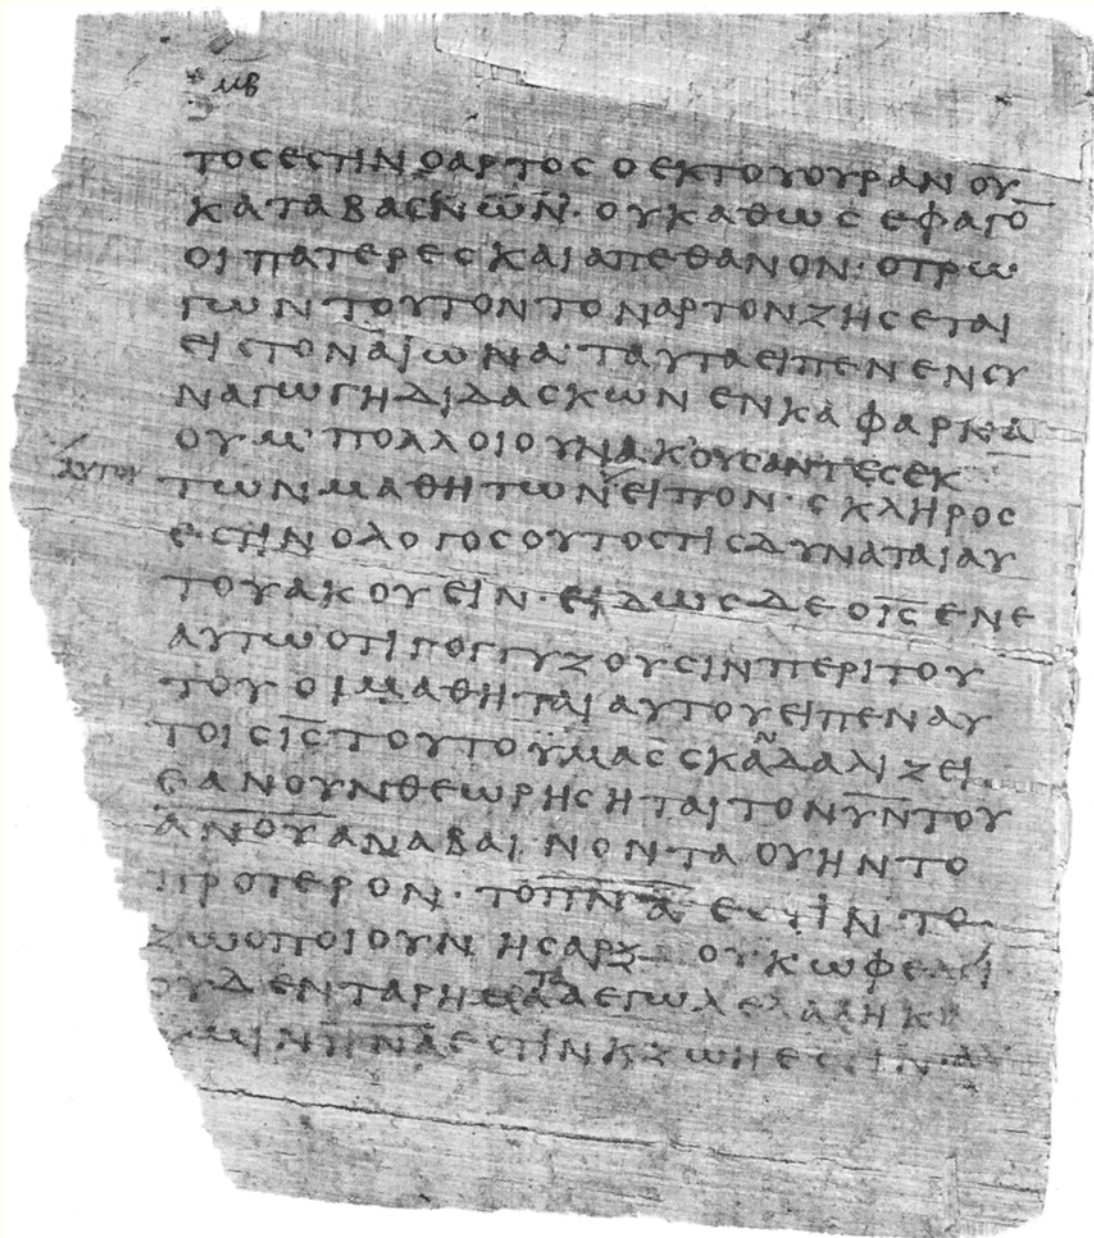 ΜΒ
ΤΟϹΕϹΤΙΝΟΑΡΤΟϹΟΕΚΤΟΥΟΥΡΑΝΟΥ
ΚΑΤΑΒΑΙΝΩΝ·ΟΥΚΑΘΩϹΕΦΑΓΟ̅
ΟΙΠΑΤΕΡΕϹΚΑΙΑΠΕΘΑΝΟΝ·ΟΤΡΩ
ΓΩΝΤΟΥΤΟΝΤΟΝΑΡΤΟΝΖΗϹΕΤΑΙ
ΕΙϹΤΟΝΑΙΩΝΑ·ΤΑΥΤΑΕΙΠΕΝΕΝϹΥ
ΝΑΓΩΓΗΔΙΔΑϹΚΩΝΕΝΚΑΦΑΡΝΑ
ΟΥΜ·ΠΟΛΛΟΙΟΥΝΑΚΟΥϹΑΝΤΕϹΕΚ
ΑΥΤΟΥ
ΤΩΝΜΑΘΗΤΩΝΕΙΠΟΝ·ϹΚΛΗΡΟϹ
ΕϹΤΙΝΟΛΟΓΟϹΟΥΤΟϹΤΙϹΔΥΝΑΤΑΙΑΥ
ΤΟΥΑΚΟΥΕΙΝ·ΕΙΔΩϹΔΕΟΙ̅Ϲ̅ΕΝΕ
ΑΥΤΩΟΤΙΓΟΓΓΥΖΟΥϹΙΝΠΕΡΙΤΟΥ
ΤΟΥΟΙΜΑΘΗΤΑΙΑΥΤΟΥΕΙΠΕΝΑΥ
ΤΟΙϹΙ̅Ϲ̅ΤΟΥΤΟΫΜΑϹϹΚΑΝΔΑΛΙΖΕΙ
ΕΑΝΟΥΝΘΕΩΡΗϹΗΤΑΙΤΟΝΥ̅Ν̅ΤΟΥ
Α̅Ν̅Ο̅Υ̅ΑΝΑΒΑΙΝΟΝΤΑΟΥΗΝΤΟ
ΠΡΟΤΕΡΟΝ·ΤΟΠ̅Ν̅Α̅ΕϹΤΙΝΤΟ
ΖΩΟΠΟΙΟΥΝΗϹΑΡΞΟΥΚΩΦΕΛΕΙ
ΟΥΔΕΝΤΑΡΗΜΑΤΑΑΕΓΩΛΕΛΑΛΗΚΑ
ΥΜΙΝΠ̅Ν̅Α̅ΕϹΤΙΝΚΖΩΗΕϹΤΙΝ·ΑΛ